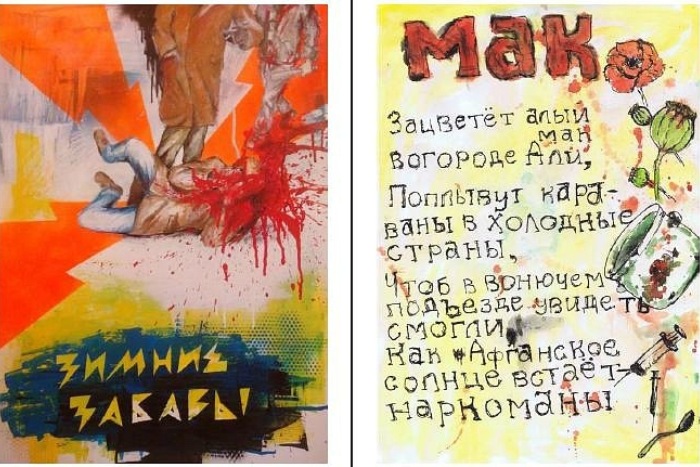 ЗИМНИЕ
ЗАБАВЫ
Мак
Зацветёт алый
мак
вогороде Али,
Поплывут кара-
ваны в холодные
страны,
Чтоб в вонючем
подъезде увидеть
смогли
Как Афганское
солнце встаёт
наркоманы